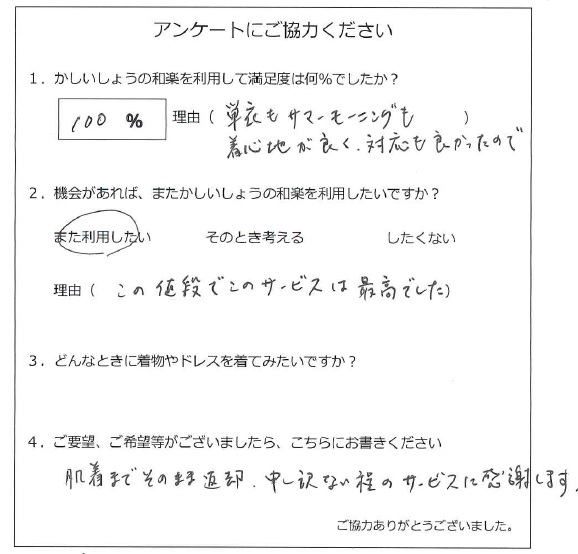 アンケートにご協力ください
1．かしいしょうの和楽を利用して満足度は何%でしたか？
100 % 理由（ 単衣も サマーモーニングも ）
着心地が良く、対応も良かったので
2．機会があれば、またかしいしょうの和楽を利用したいですか？
また利用したい そのとき考える したくない
理由（ この値段でこのサービスは最高でした）
3．どんなときに着物やドレスを着てみたいですか？
4．ご要望、ご希望等がございましたら、こちらにお書きください
肌着までそのまま返却、申し訳ない程のサービスに感謝します。
ご協力ありがとうございました。